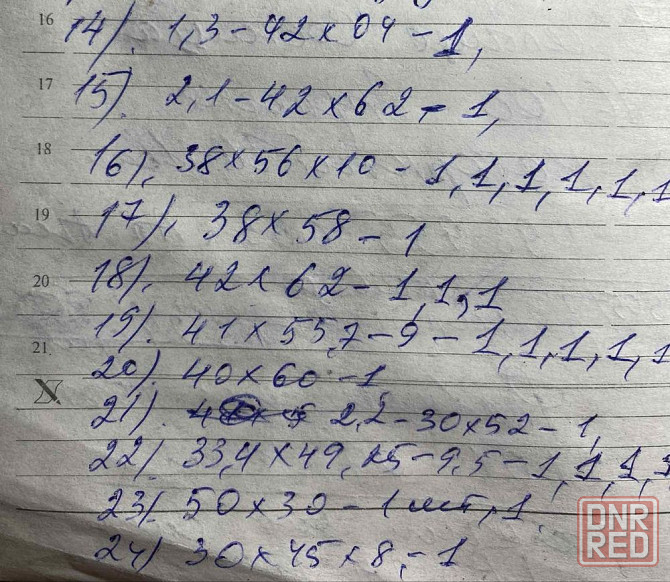 16 14). 1,3-42×04-1,
17 15). 2,1-42×62-1,
18 16). 38×56×10-1,1,1,1,1,1
19 17). 38×58-1
20 18). 42×62-1,1,1
19). 41×55,7-9-1,1,1,1,1
21. 20). 40×60-1
X 21). 2,2-30×52-1,
22). 33,4×49,25-9,5-1,1,1,1
23). 50×30-1шт,1
24) 30×45×8,-1
DNR
RED